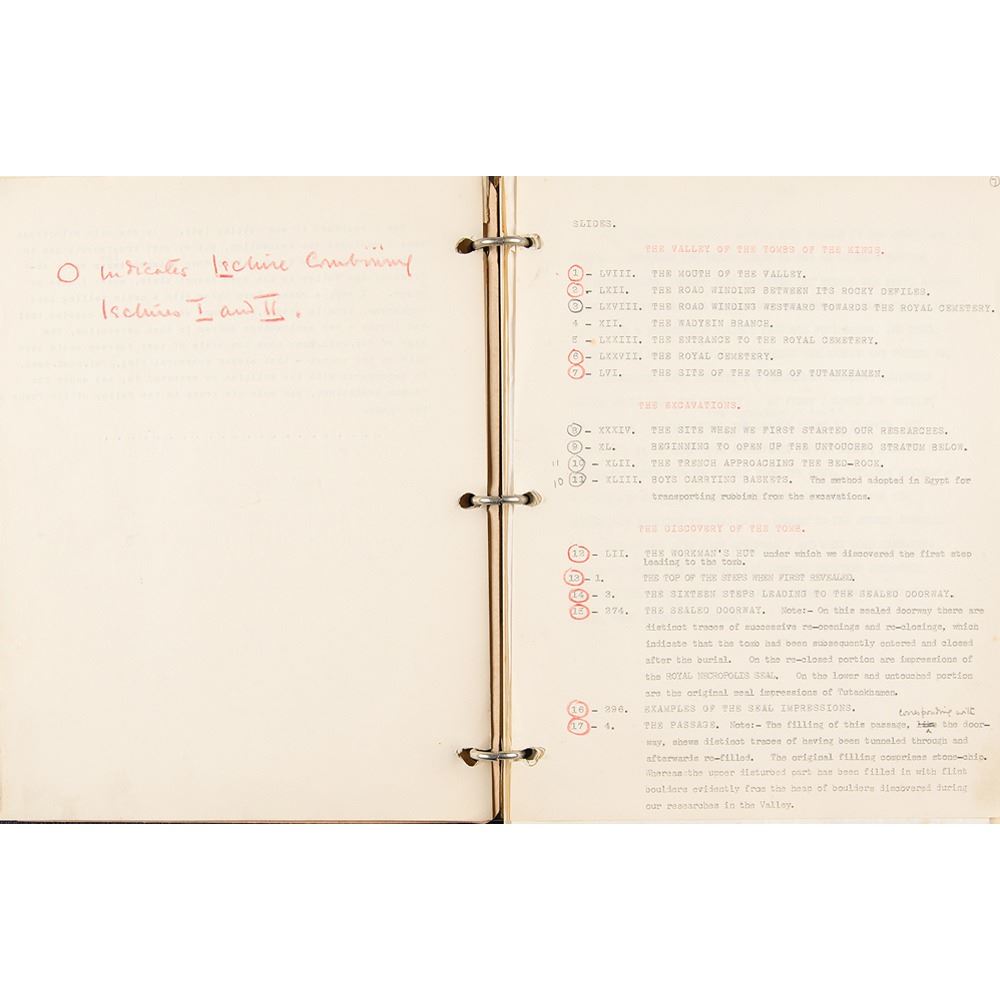 O indicates Lecture Combining
Lectures I and II.
7
SLIDES.
THE VALLEY OF THE TOMBS OF THE KINGS.
1 - LVIII. THE MOUTH OF THE VALLEY.
2 - LXII. THE ROAD WINDING BETWEEN ITS ROCKY DEFILES.
3 - LXVIII. THE ROAD WINDING WESTWARD TOWARDS THE ROYAL CEMETERY.
4 - XII. THE WADYEIN BRANCH.
5 - LXXIII. THE ENTRANCE TO THE ROYAL CEMETERY.
6 - LXXVII. THE ROYAL CEMETERY.
7 - LVI. THE SITE OF THE TOMB OF TUTANKHAMEN.
THE EXCAVATIONS.
8 - XXXIV. THE SITE WHEN WE FIRST STARTED OUR RESEARCHES.
9 - XL. BEGINNING TO OPEN UP THE UNTOUCHED STRATUM BELOW.
11 10 - XLII. THE TRENCH APPROACHING THE BED-ROCK.
10 11 - XLIII. BOYS CARRYING BASKETS. The method adopted in Egypt for
transporting rubbish from the excavations.
THE DISCOVERY OF THE TOMB.
12 - LII. THE WORKMAN'S HUT under which we discovered the first step
leading to the tomb.
13 - 1. THE TOP OF THE STEPS WHEN FIRST REVEALED.
14 - 3. THE SIXTEEN STEPS LEADING TO THE SEALED DOORWAY.
15 - 274. THE SEALED DOORWAY. Note:- On this sealed doorway there are
distinct traces of successive re-openings and re-closings, which
indicate that the tomb had been subsequently entered and closed
after the burial. On the re-closed portion are impressions of
the ROYAL NECROPOLIS SEAL. On the lower and untouched portion
are the original seal impressions of Tutankhamen.
16 - 296. EXAMPLES OF THE SEAL IMPRESSIONS.
corresponding with
17 - 4. THE PASSAGE. Note:- The filling of this passage, like the door-
way, shews distinct traces of having been tunneled through and
afterwards re-filled. The original filling comprises stone-chip.
Whereas the upper disturbed part has been filled in with flint
boulders evidently from the heap of boulders discovered during
our researches in the Valley.